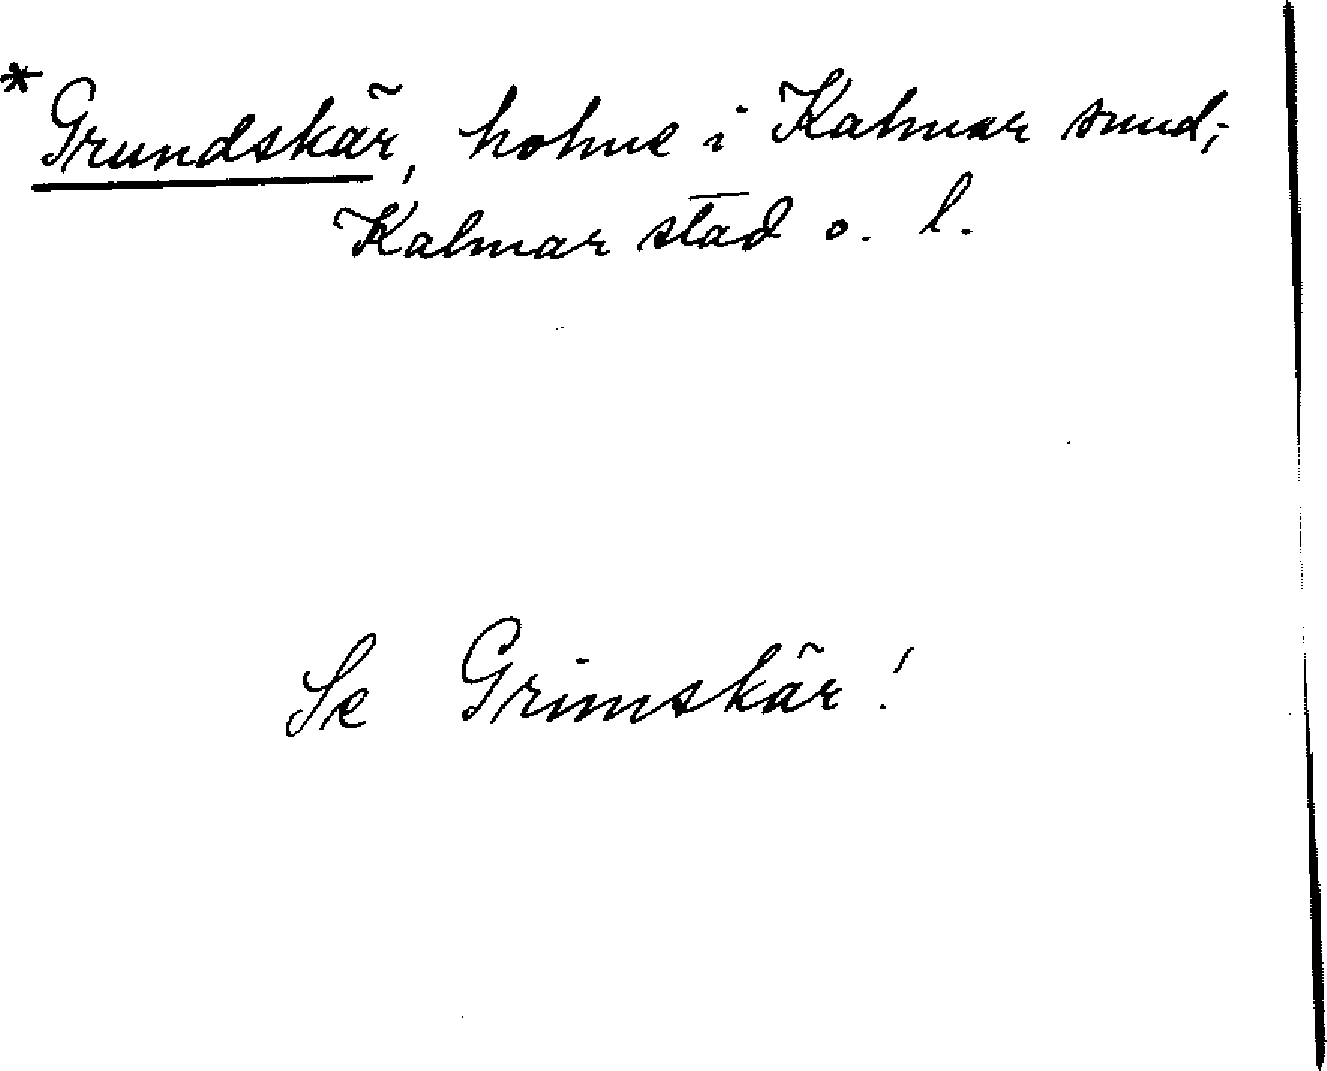 *Grundskär, holme i Kalmar sund;
Kalmar stad o. l.
Se Grimskär!